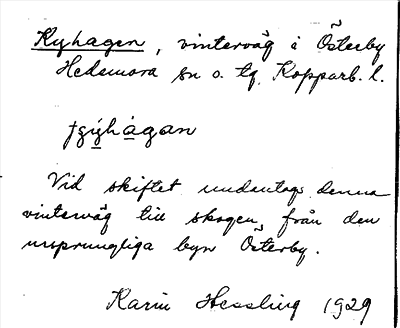 Kyhagen, vinterväg i Österby
Hedemora sn o. tg. Kopparb. l.
Vid skiftet undantogs denna
vinterväg till skogen från den
ursprungliga byn Österby.
Karin Hessling 1929